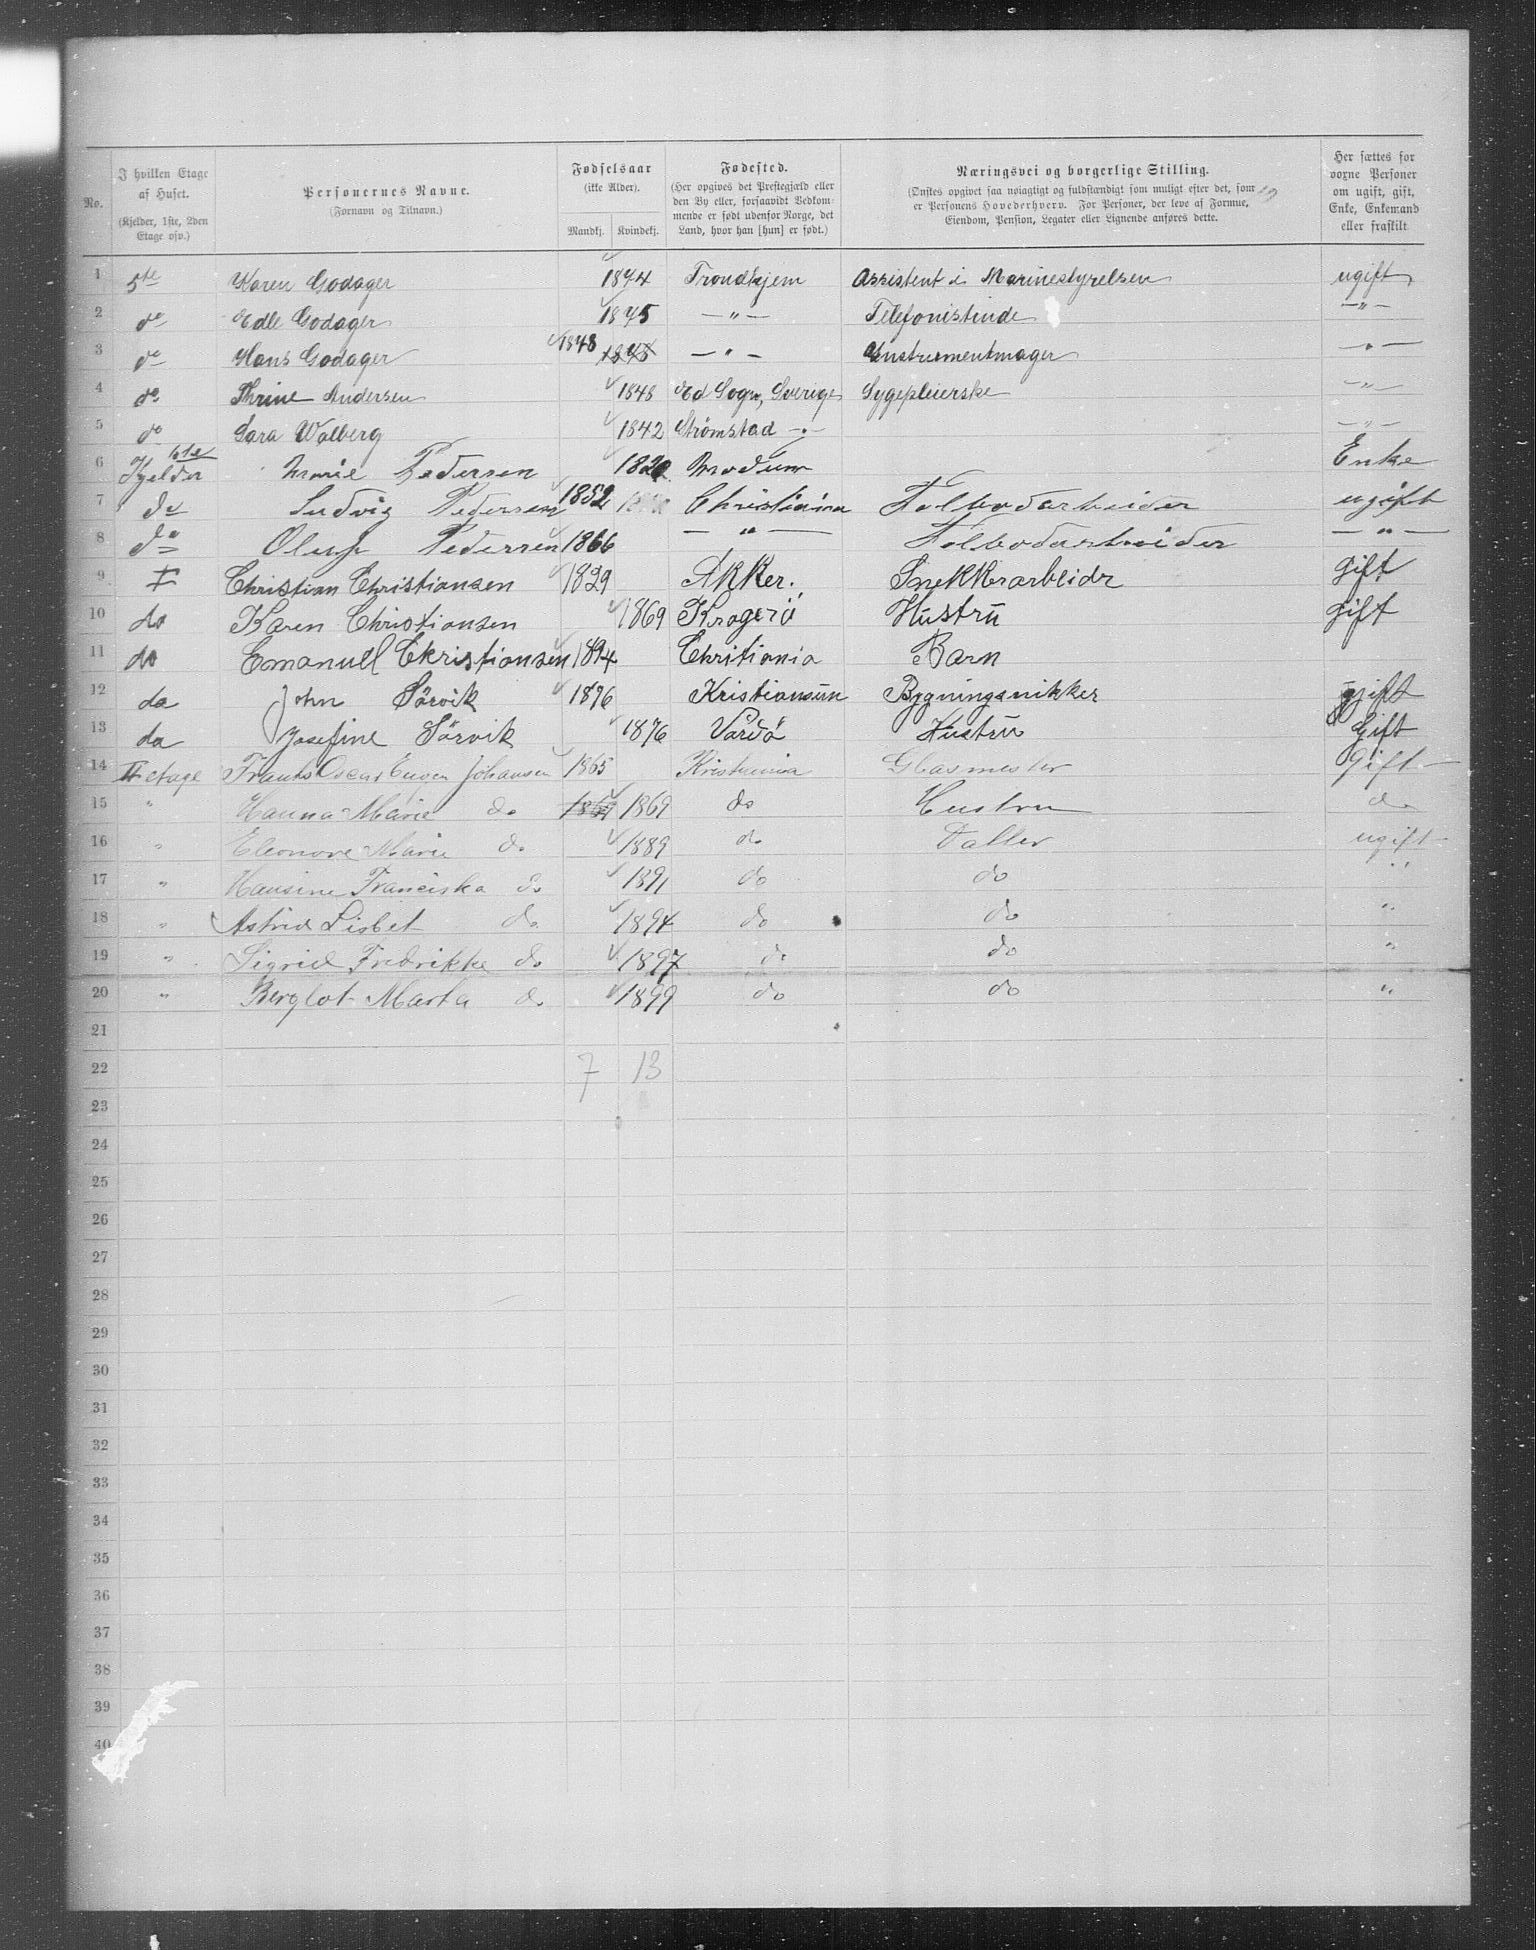 No. | I hvilken Etage af Huset. (Kjelder, 1ste, 2den Etage osv.) | Personernes Navne. (Fornavn og Tilnavn.) | Fødselsaar (ikke Alder). Mandkj. Kvindekj. | Fødested. (Her opgives det Prestegjæld eller den By eller, forsaavidt Vedkommende er født udenfor Norge, det Land, hvor han [hun] er født.) | Næringsvei og borgerlige Stilling. (Ønskes opgivet saa nøiagtigt og fuldstændigt som muligt efter det, som er Personens Hovederhverv. For Personer, der leve af Formue, Eiendom, Pension, Legater eller Lignende anføres dette. | Her sættes for voxne Personer om ugift, gift, Enke, Enkemand eller fraskilt
1 5te Karen Godager 1844 Trondhjem Assistent i Marinestyrelsen ugift
2 do Edle Godager 1845 —"— Telefonistinde —"—
3 do Hans Godager 1848 1848 —"— Instrumentmager —"—
4 do Thrine Andersen 1848 Ed Sogn, Sverige Sygepleierske —"—
5 do Sara Walberg 1842 Strømstad —"— —"—
6 1ste Kjelder Marie Pedersen 1820 Modum Enke
7 do Ludvig Pedersen 1852 Christiania Tolbodarbeider ugift
8 do Oluf Pedersen 1866 —"— Tolbodarbeider —"—
9 I Christian Christiansen 1829 Akker. Snekkerarbeidr gift
10 do Karen Christiansen 1869 Kragerö Hustru gift
11 do Emanuel Christiansen 1894 Chritiania Barn
12 do John Sörvik 1876 Kristiansun Bygningsnikker gift
13 do Josefine Sörvik 1876 Vardö Hustru Gift
14 II etage Frants Oscar Eugen Johansen 1865 Kristiania Glasmester Gift
15 " Hanna Marie do 1869 1869 do Hustru do
16 " Eleonore Marie do 1889 do Datter ugift
17 " Hansine Franciska do 1891 do do "
18 " Astrid Lisbet do 1894 do do "
19 " Sigrid Fredrikke do 1897 do do "
20 " Berglot Marta do 1899 do do "
21
22 7 13
23
24
25
26
27
28
29
30
31
32
33
34
35
36
37
38
39
40